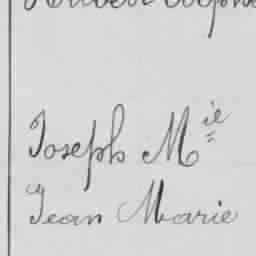 Joseph M^ie
Jean Marie